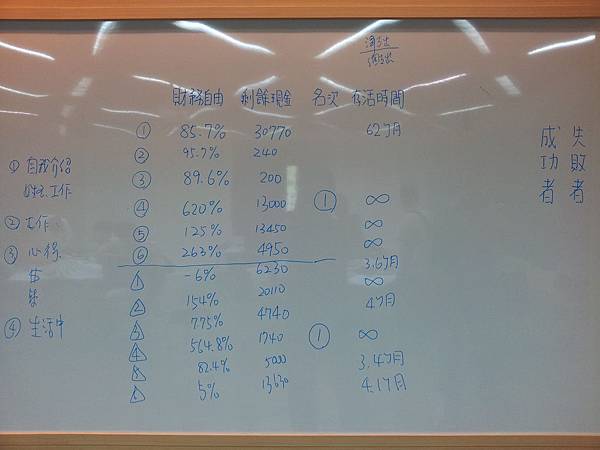 淨支出
總支出
財務自由 剩餘現金 名次 存活時間
① 85.7% 30770 62個月
② 95.7% 240
③ 89.6% 200
④ 620% 13000 ① ∞
⑤ 125% 13450 ∞
⑥ 263% 4950 ∞
1 -6% 6230 3.6個月
2 154% 20110 ∞
3 775% 4740 4個月
4 564.8% 1740 ① ∞
5 82.4% 5000 3.4個月
6 5% 13630 4.1個月
① 自我介紹
姓名.工作
② 工作
③ 心得
④ 生活中
失敗者
成功者